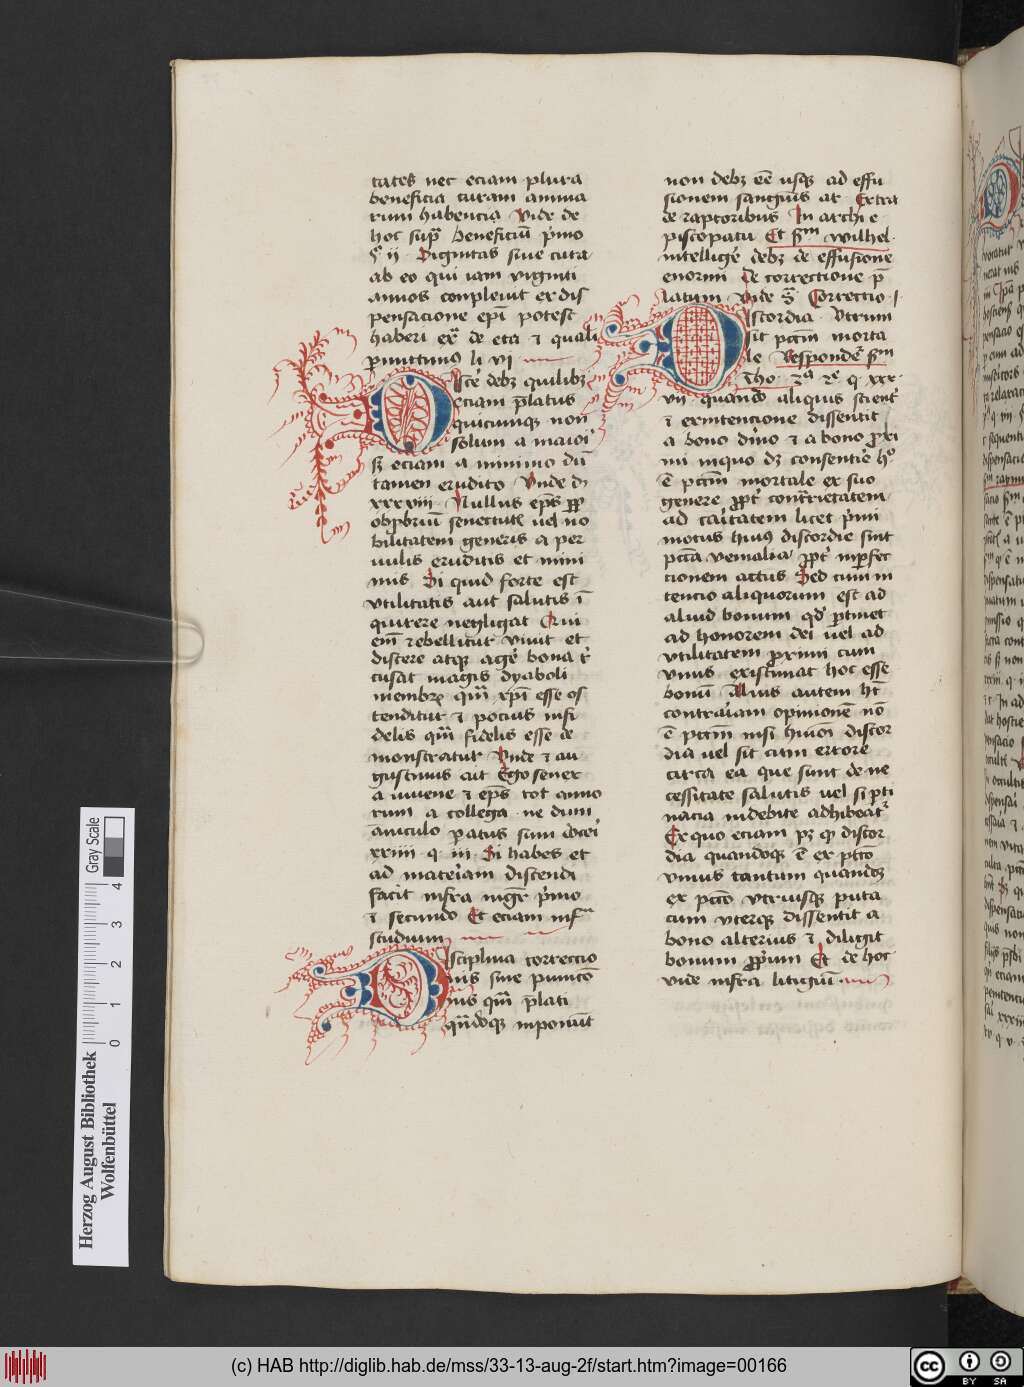 tates nec eciam plura
beneficia curam anima
rum habencia Vide de
hoc supra beneficiū pͥmo
§ ij Dignitas siue cura
ab eo qui iam viginti
annos conpleuit ex dis
pensacione epī potest
haberi exͣ de eta ⁊ quali
permittimꝰ li vi
Discē debꝫ quilibꝫ
eciam p̄latus
quicumqꝫ non
solum a maiori
sꝫ eciam a minimo dū
tamen erudito Vnde di
xxxviii Nullus ep̄s ꝓpter
obprͥbriū senectutis uel no
bilitatem generis a per
uulis eruditis et mini
mis Si quid forte est
vtilitatis aut salutis ī
quirere negligat Qui
em̄ rebelliter viuit et
discere atqꝫ agere bona re
cusat magis dyaboli
membrum qm̄ xp̄i esse os
tenditur ⁊ pocius infi
delis qm̄ fidelis esse de
monstratur Vnde ⁊ au
gustinus ait Ego senex
a iuuene ⁊ ep̄s tot anno
rum a collega ne dum
anniculo paratus sum doceri
xxiiii q iii Si habes et
ad materiam discendi
facit infra magister pͥmo
⁊ secundo Et eciam infra
studium
Disciplina correctio
nis siue punicō
nis qm̄ p̄lati
qn̄doqꝫ inponūt
non debꝫ eē usqꝫ ad effu
sionem sanguinis ar Extra
de raptoribus In archi e
piscopatu Et sm̄ wilhel
intelligere debꝫ de effusione
enormi De correctione p̄
latum vide sͣ Correctio i
Discordia Vtrum
sit pctm̄ morta
le Respondet sm̄
Tho 2ͣ 2ͤ q xxx
vii quando aliquis scienter
⁊ ex intencione dissentit
a bono diuino ⁊ a bono proxi
mi in quo dꝫ consentire hͦ
ē pctm̄ mortale ex suo
genere ꝓpter contrarietatem
ad caritatem licet pͥmi
motus huiꝰ discordie sint
pctā venialia ꝓpter inperfec
tionem actus Sed cum in
tencio aliquorum est ad
aliud bonum qd̄ pertinet
ad honorem dei uel ad
vtilitatem proximi cum
vnus existimat hoc esse
bonū Alius autem ht̄
contrariam opinionē nō
ē pctm̄ nisi huiusmodi discor
dia uel sit cum errore
circa ea que sunt de ne
cessitate salutis uel si perti
nacia indebite adhibeatur
Ex quo eciam pꝫ qꝫ discor
dia quandoqꝫ ē ex pctō
vnius tantum quandoqꝫ
ex pctō vtriusqꝫ puta
cum vterqꝫ dissentit a
bono alterius ⁊ diligit
bonum ꝓprium Et de hoc
vide infra litigiū
Herzog August Bibliothek
Wolfenbüttel
0 1 2 3 4
Gray Scale
(c) HAB http://diglib.hab.de/mss/33-13-aug-2f/start.htm?image=00166
cc BY SA